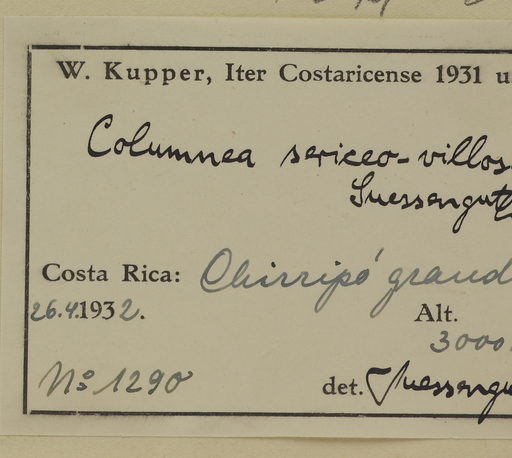 W. Kupper, Iter Costaricense 1931 u
Columnea sericeo-villos
Suessengut
Costa Rica: Chirripó grand
26.4.1932. Alt.
3000
No 1290 det. Suessengu